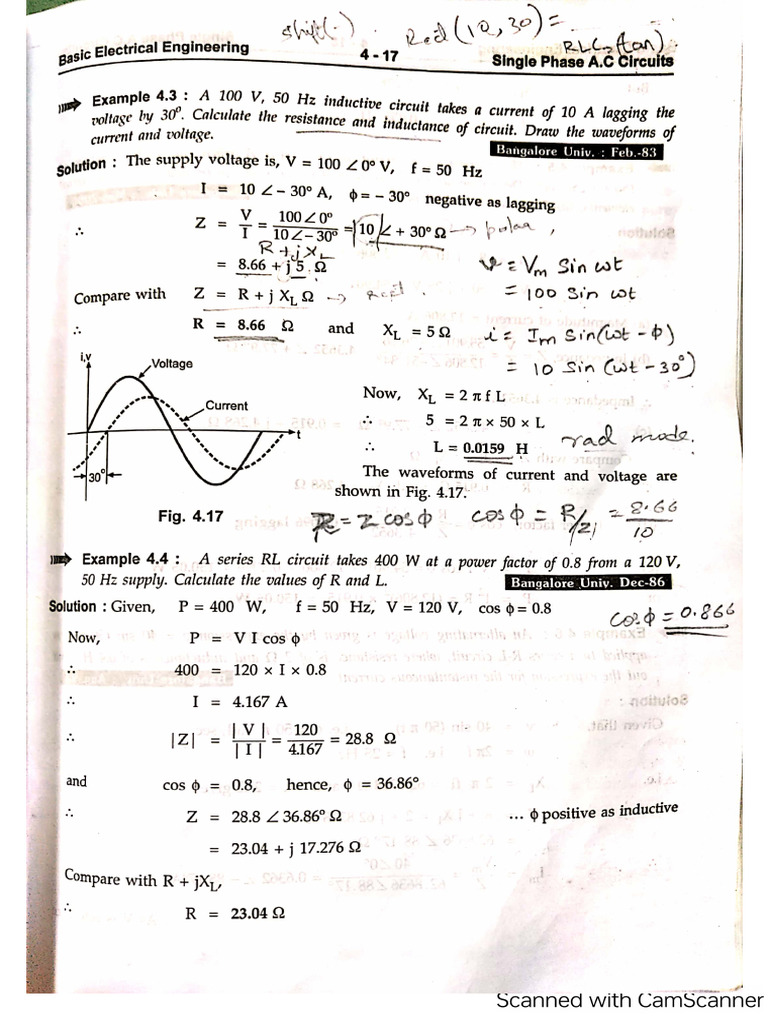 shift(-) Rec(10, 30) =
RLC (tan)
Basic Electrical Engineering 4 - 17 Single Phase A.C Circuits
Example 4.3 : A 100 V, 50 Hz inductive circuit takes a current of 10 A lagging the
voltage by 30°. Calculate the resistance and inductance of circuit. Draw the waveforms of
current and voltage. Bangalore Univ. : Feb.-83
Solution : The supply voltage is, V = 100 ∠0° V, f = 50 Hz
I = 10 ∠– 30° A, ϕ = – 30° negative as lagging
∴ Z = V/I = 100∠0° / 10∠–30° = 10 ∠ + 30° Ω → polar,
R + jXL
= 8.66 + j 5 Ω
v = Vm Sin ωt
Compare with Z = R + j XL Ω → Rect.
= 100 Sin ωt
∴ R = 8.66 Ω and XL = 5 Ω
i = Im Sin(ωt - ϕ)
= 10 Sin (ωt - 30°)
i,v
Voltage
Current
t
30°
Fig. 4.17
Now, XL = 2 π f L
∴ 5 = 2 π × 50 × L
∴ L = 0.0159 H
rad mode.
The waveforms of current and voltage are
shown in Fig. 4.17.
R = Z cos ϕ cos ϕ = R/Z = 8.66/10
Example 4.4 : A series RL circuit takes 400 W at a power factor of 0.8 from a 120 V,
50 Hz supply. Calculate the values of R and L. Bangalore Univ. Dec-86
Solution : Given, P = 400 W, f = 50 Hz, V = 120 V, cos ϕ = 0.8
cos ϕ = 0.866
Now, P = V I cos ϕ
∴ 400 = 120 × I × 0.8
∴ I = 4.167 A
∴ |Z| = | V | / | I | = 120 / 4.167 = 28.8 Ω
and cos ϕ = 0.8, hence, ϕ = 36.86°
∴ Z = 28.8 ∠ 36.86° Ω ... ϕ positive as inductive
= 23.04 + j 17.276 Ω
Compare with R + jXL,
∴ R = 23.04 Ω
Scanned with CamScanner